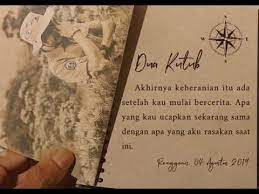 Dua Kutub
Akhirnya keberanian itu ada
setelah kau mulai bercerita. Apa
yang kau ucapkan sekarang sama
dengan apa yang aku rasakan saat
ini.
04 Agustus 2019